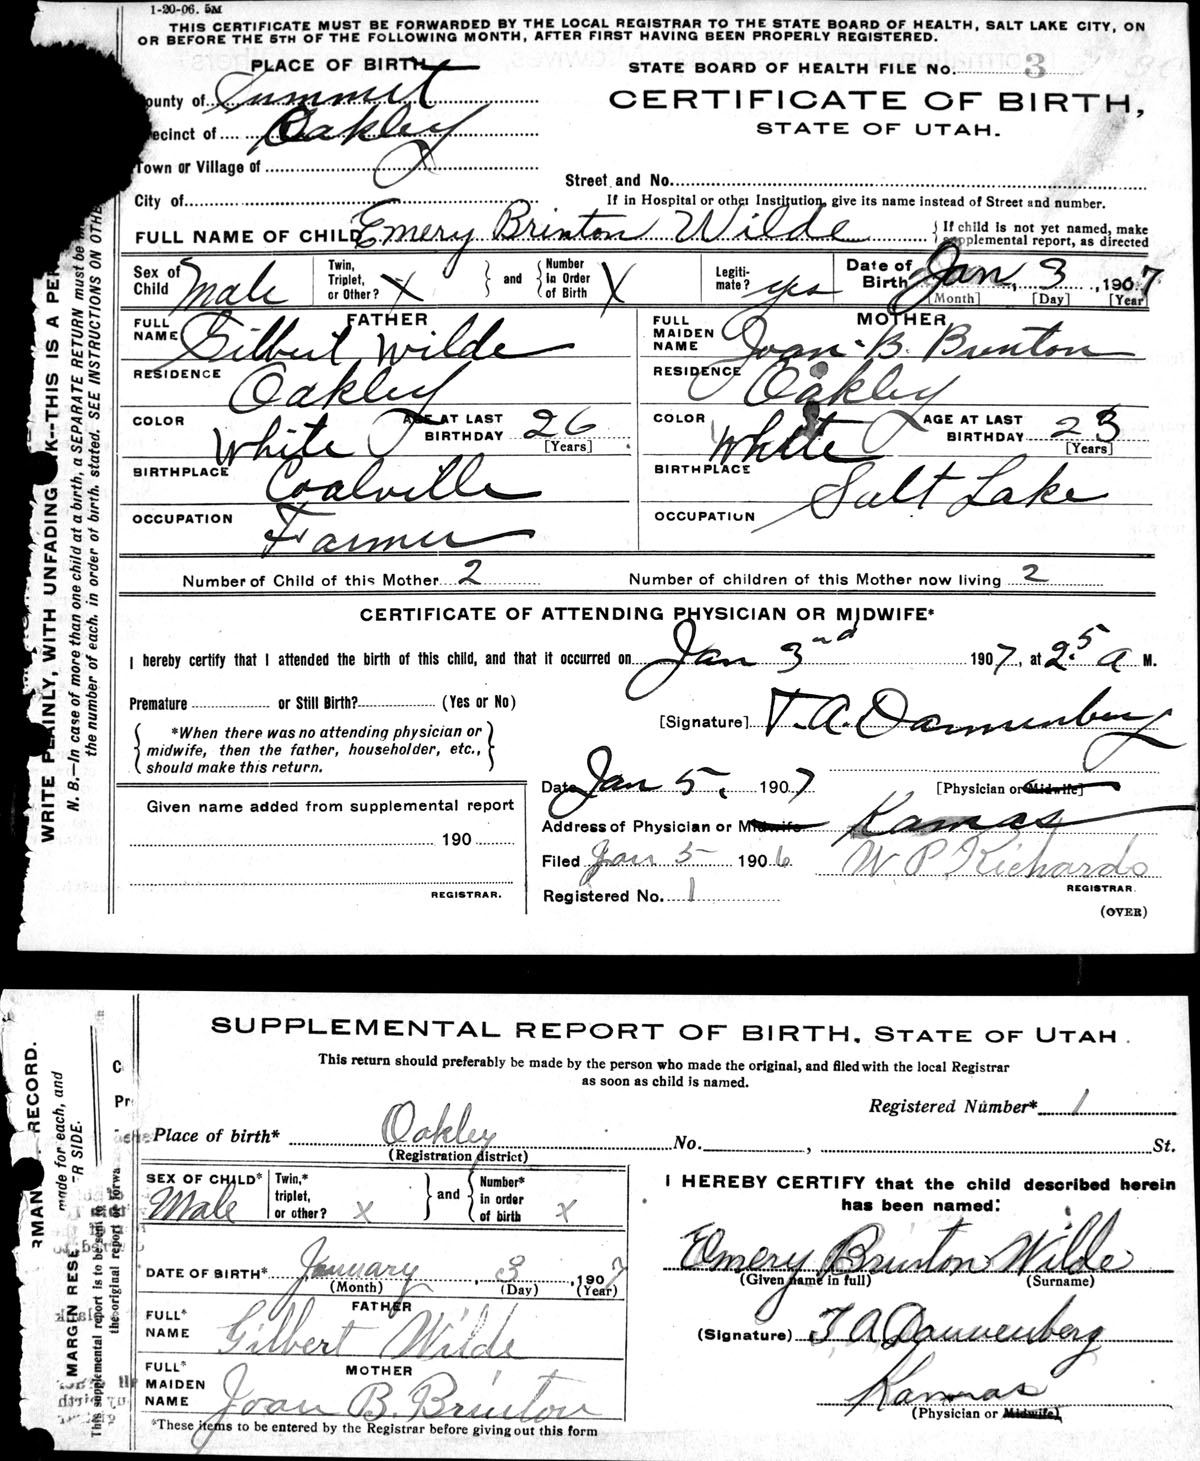 1-20-06. 5M
THIS CERTIFICATE MUST BE FORWARDED BY THE LOCAL REGISTRAR TO THE STATE BOARD OF HEALTH, SALT LAKE CITY, ON
OR BEFORE THE 5TH OF THE FOLLOWING MONTH, AFTER FIRST HAVING BEEN PROPERLY REGISTERED.
PLACE OF BIRTH
STATE BOARD OF HEALTH FILE No. 3
ounty of Summit
CERTIFICATE OF BIRTH,
STATE OF UTAH.
ecinct of Oakley
Town or Village of X
Street and No.
City of
If in Hospital or other Institution, give its name instead of Street and number.
FULL NAME OF CHILD Emery Brinton Wilde { If child is not yet named, make
supplemental report, as directed
Sex of Child Male
Twin, Triplet, or Other? X } and { Number in Order of Birth X
Legiti-mate? yes
Date of Birth Jan, 3, 1907
[Month] [Day] [Year]
FATHER
FULL NAME Gilbert Wilde
RESIDENCE Oakley
COLOR White AGE AT LAST BIRTHDAY 26
[Years]
BIRTHPLACE Coalville
OCCUPATION Farmer
MOTHER
FULL MAIDEN NAME Joan B. Brinton
RESIDENCE Oakley
COLOR White AGE AT LAST BIRTHDAY 23
[Years]
BIRTHPLACE Salt Lake
OCCUPATION
Number of Child of this Mother 2 Number of children of this Mother now living 2
CERTIFICATE OF ATTENDING PHYSICIAN OR MIDWIFE*
I hereby certify that I attended the birth of this child, and that it occurred on Jan 3nd 1907, at 2.5 a M.
Premature or Still Birth? (Yes or No)
[Signature] T. A. Dannenberg
{ *When there was no attending physician or
midwife, then the father, householder, etc.,
should make this return. }
Date Jan 5, 1907 [Physician or Midwife]
Given name added from supplemental report
190
REGISTRAR.
Address of Physician or Midwife Kamas
Filed Jan 5 1906 W P Richards
REGISTRAR.
Registered No. 1
(OVER)
WRITE PLAINLY, WITH UNFADING K--THIS IS A PER
N. B.—In case of more than one child at a birth, a SEPARATE RETURN must be
the number of each, in order of birth, stated. SEE INSTRUCTIONS ON OTHE
SUPPLEMENTAL REPORT OF BIRTH, STATE OF UTAH.
This return should preferably be made by the person who made the original, and filed with the local Registrar
as soon as child is named.
Registered Number* 1
Place of birth* Oakley No. , St.
(Registration district)
SEX OF CHILD* Male
Twin,* triplet, or other? x } and { Number* in order of birth x
DATE OF BIRTH* January, 3, 1907
(Month) (Day) (Year)
FATHER
FULL* NAME Gilbert Wilde
MOTHER
FULL* MAIDEN NAME Joan B. Brinton
*These items to be entered by the Registrar before giving out this form
I HEREBY CERTIFY that the child described herein
has been named:
Emery Brinton Wilde
(Given name in full) (Surname)
(Signature) T A Dannenberg
Kamas
(Physician or Midwife)
RMAN RECORD.
made for each, and
R SIDE.
MARGIN RESE
This supplemental report is to be sen
the original report is forwa